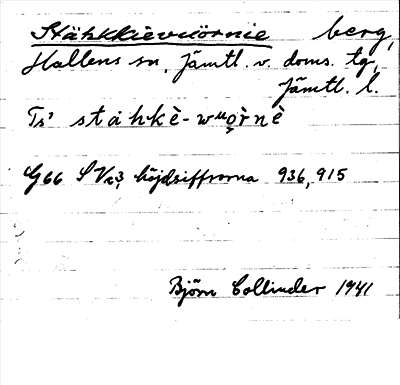 Stähkkievuörnie berg,
Hallens sn, Jämtl. v. doms. tg,
Jämtl. l.
Ts' ståhkè-wᵘo̧rnè
G66 SV 23, höjdsiffrorna 936, 915
Björn Collinder 1941